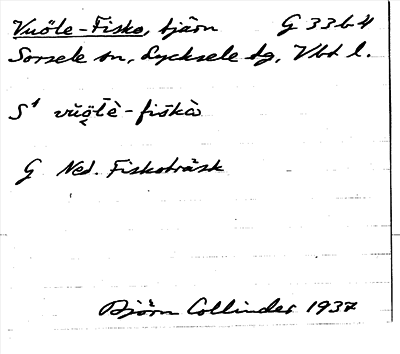 Vuöle-Fisko, tjärn G 33b4
Sorsele sn, Lycksele tg, Vbt l.
S¹ vŭǫ̈lē̆-fiskà
G Ned. Fiskoträsk
Björn Collinder 1937